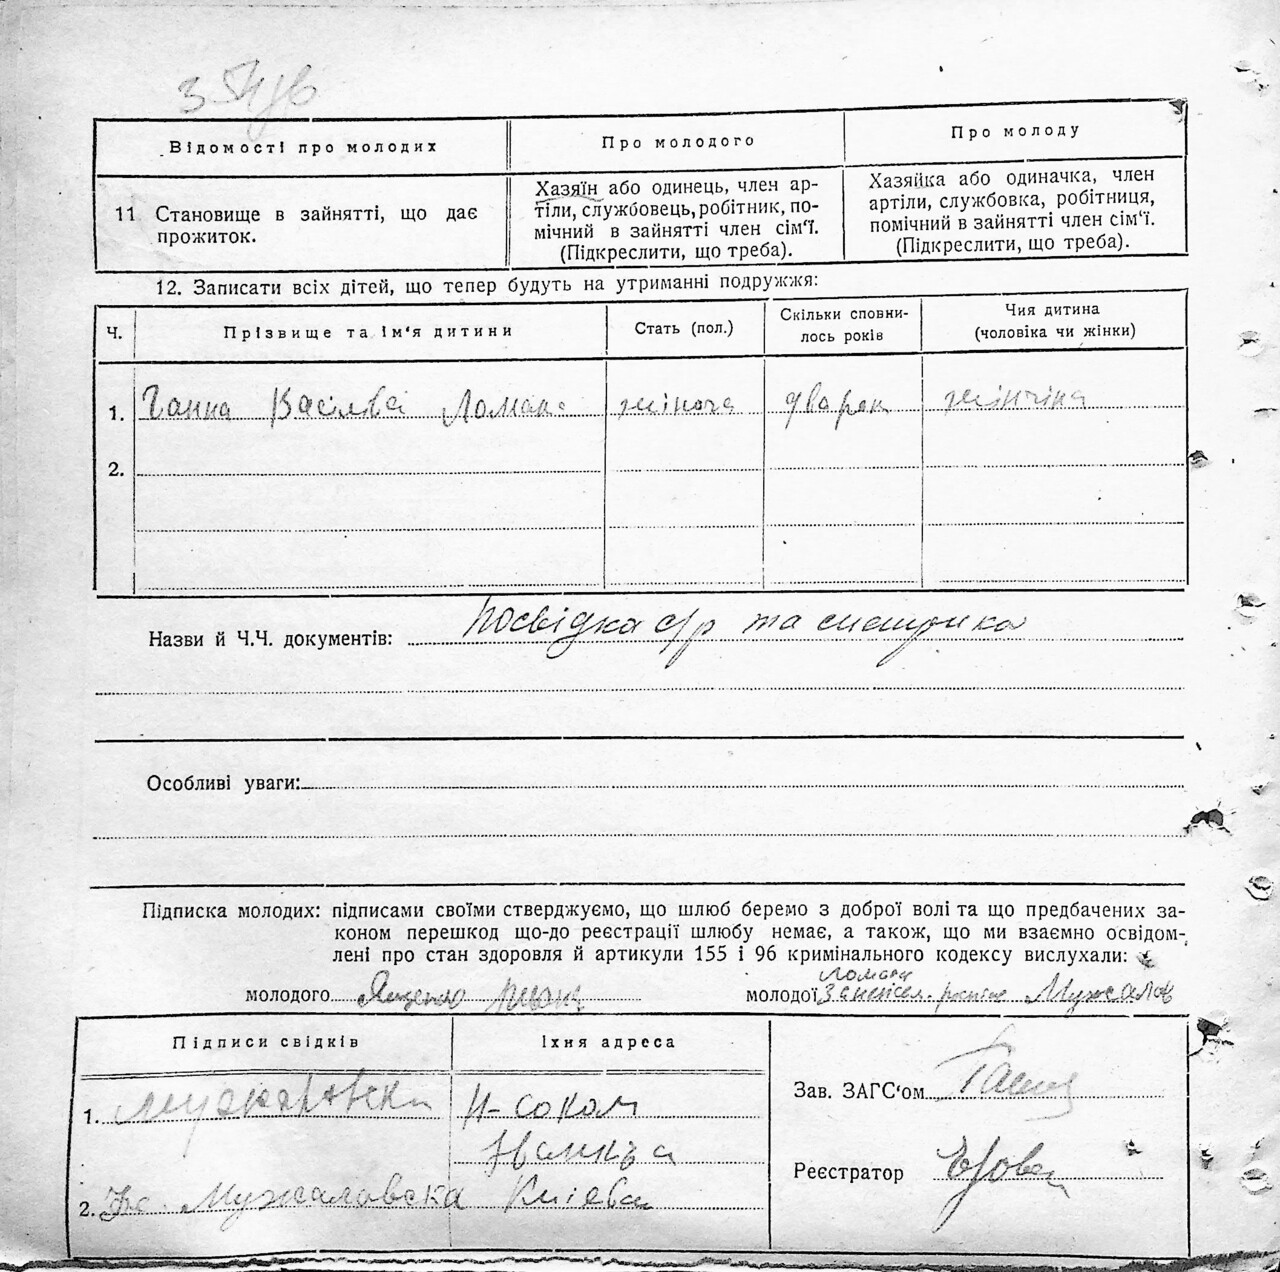 Відомості про молодих
Про молодого
Про молоду
11 Становище в зайнятті, що дає
прожиток.
Хазяїн або одинець, член ар-
тіли, службовець, робітник, по-
мічний в зайнятті член сім'ї.
(Підкреслити, що треба).
Хазяйка або одиначка, член
артіли, службовка, робітниця,
помічний в зайнятті член сім'ї.
(Підкреслити, що треба).
12. Записати всіх дітей, що тепер будуть на утриманні подружжя:
Ч.
Прізвище та ім'я дитини
Стать (пол.)
Скільки сповни-
лось років
Чия дитина
(чоловіка чи жінки)
1. Ганна Ломак жіноча
2.
Назви й Ч.Ч. документів: Посвідка с/р та
Особливі уваги:
Підписка молодих: підписами своїми стверджуємо, що шлюб беремо з доброї волі та що предбачених за-
коном перешкод що-до реєстрації шлюбу немає, а також, що ми взаємно освідом-
лені про стан здоровля й артикули 155 і 96 кримінального кодексу вислухали:
молодого Яценко
молодої
Підписи свідків
Їхня адреса
1.
2. Мужаловска Києва
Зав. ЗАГС'ом
Реєстратор